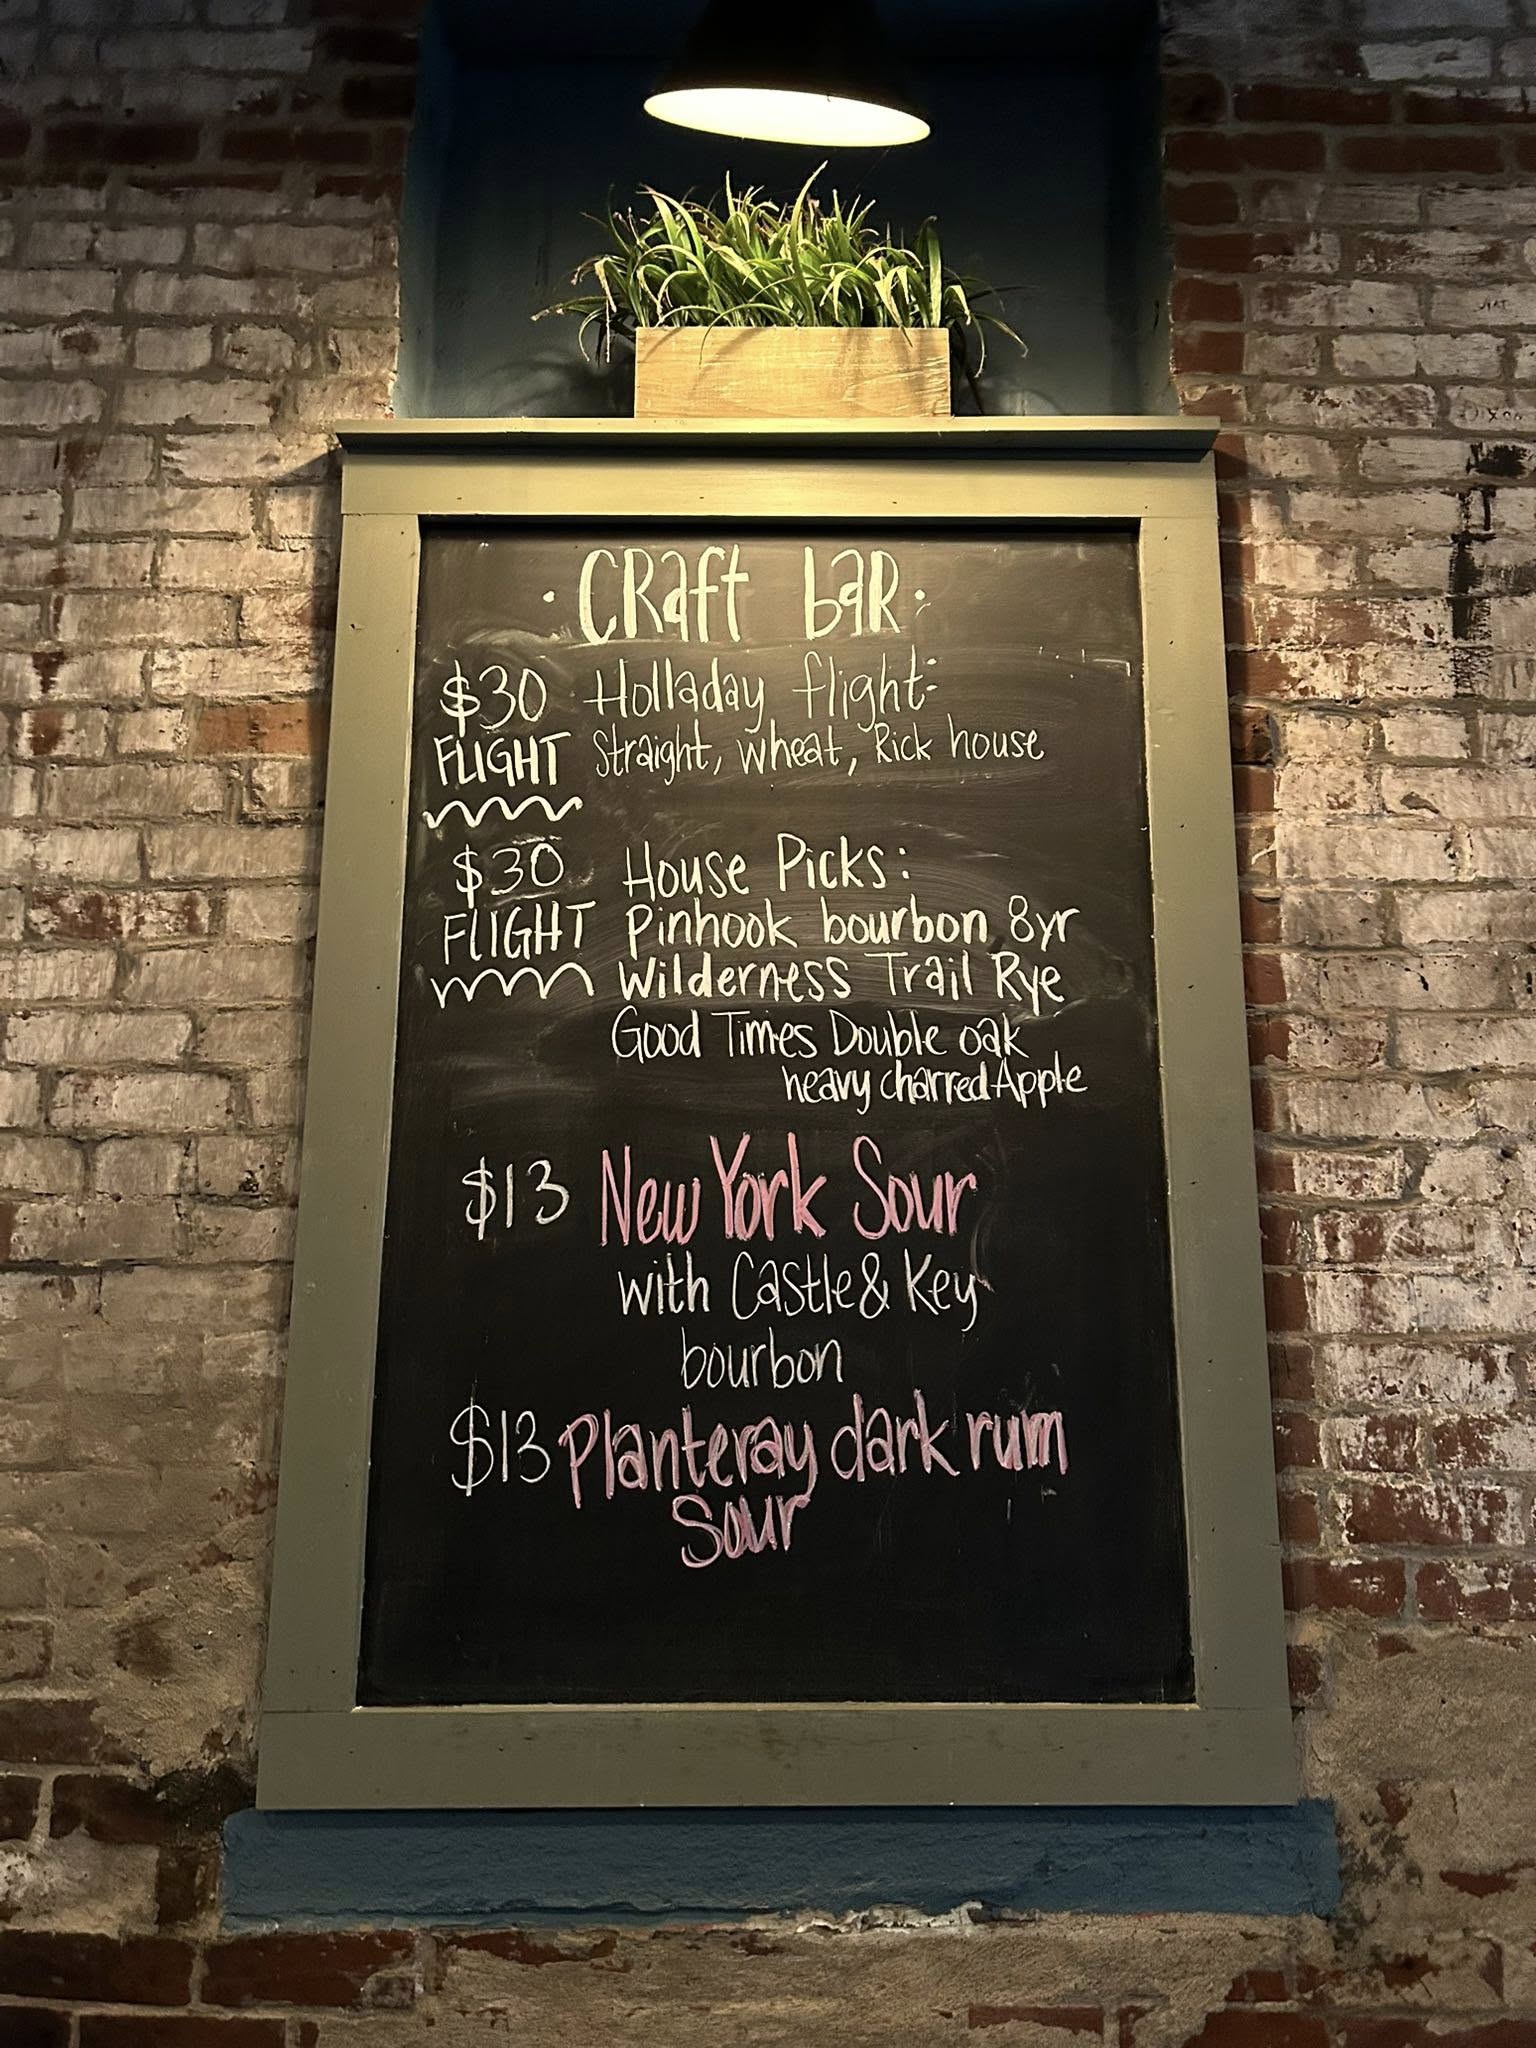 · CRaft baR ·
$30 Holladay flight:
FLIGHT Straight, wheat, Rick house
$30 House Picks:
FLIGHT Pinhook bourbon 8yr
Wilderness Trail Rye
Good Times Double oak
heavy charred Apple
$13 New York Sour
with Castle & Key
bourbon
$13 Planteray dark rum
Sour